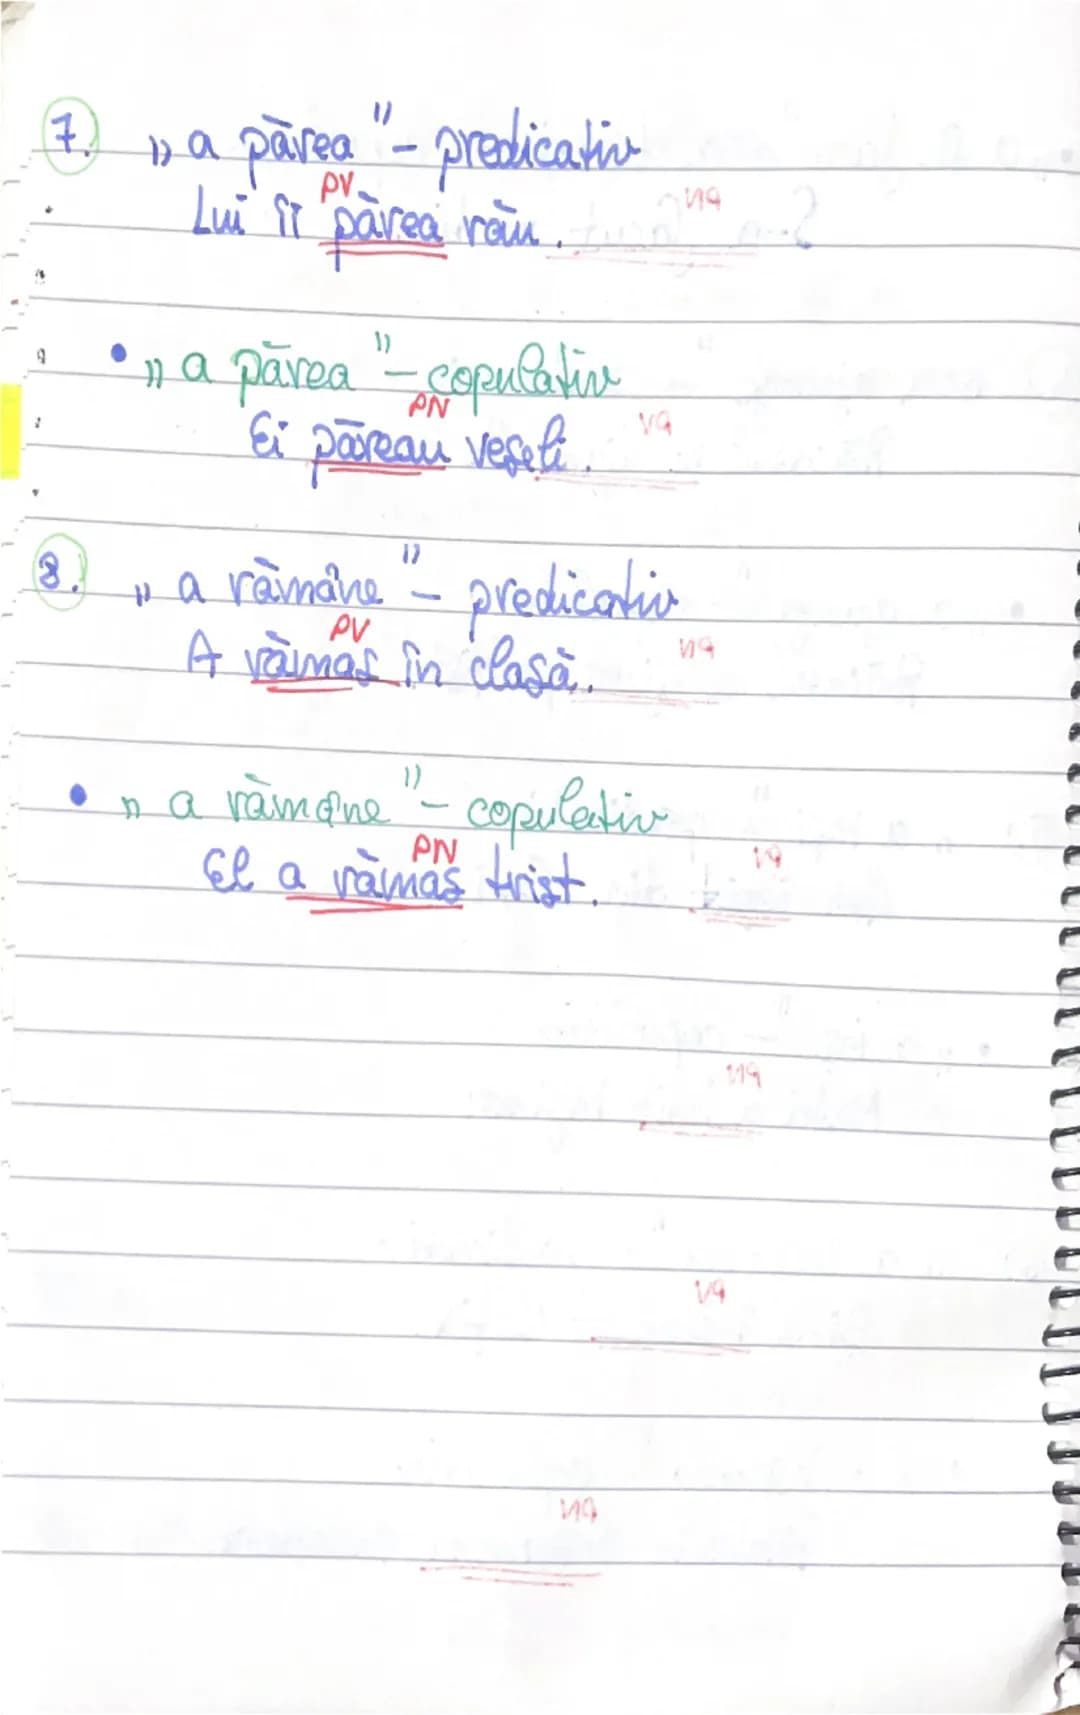 7. „a părea" - predicativ
PV
Lui îi părea rău.
• „a părea" - copulativ
PN
Ei păreau veseli.
8. „a rămâne" - predicativ
PV
A rămas în clasă.
• „a rămâne" - copulativ
PN
El a rămas trist.